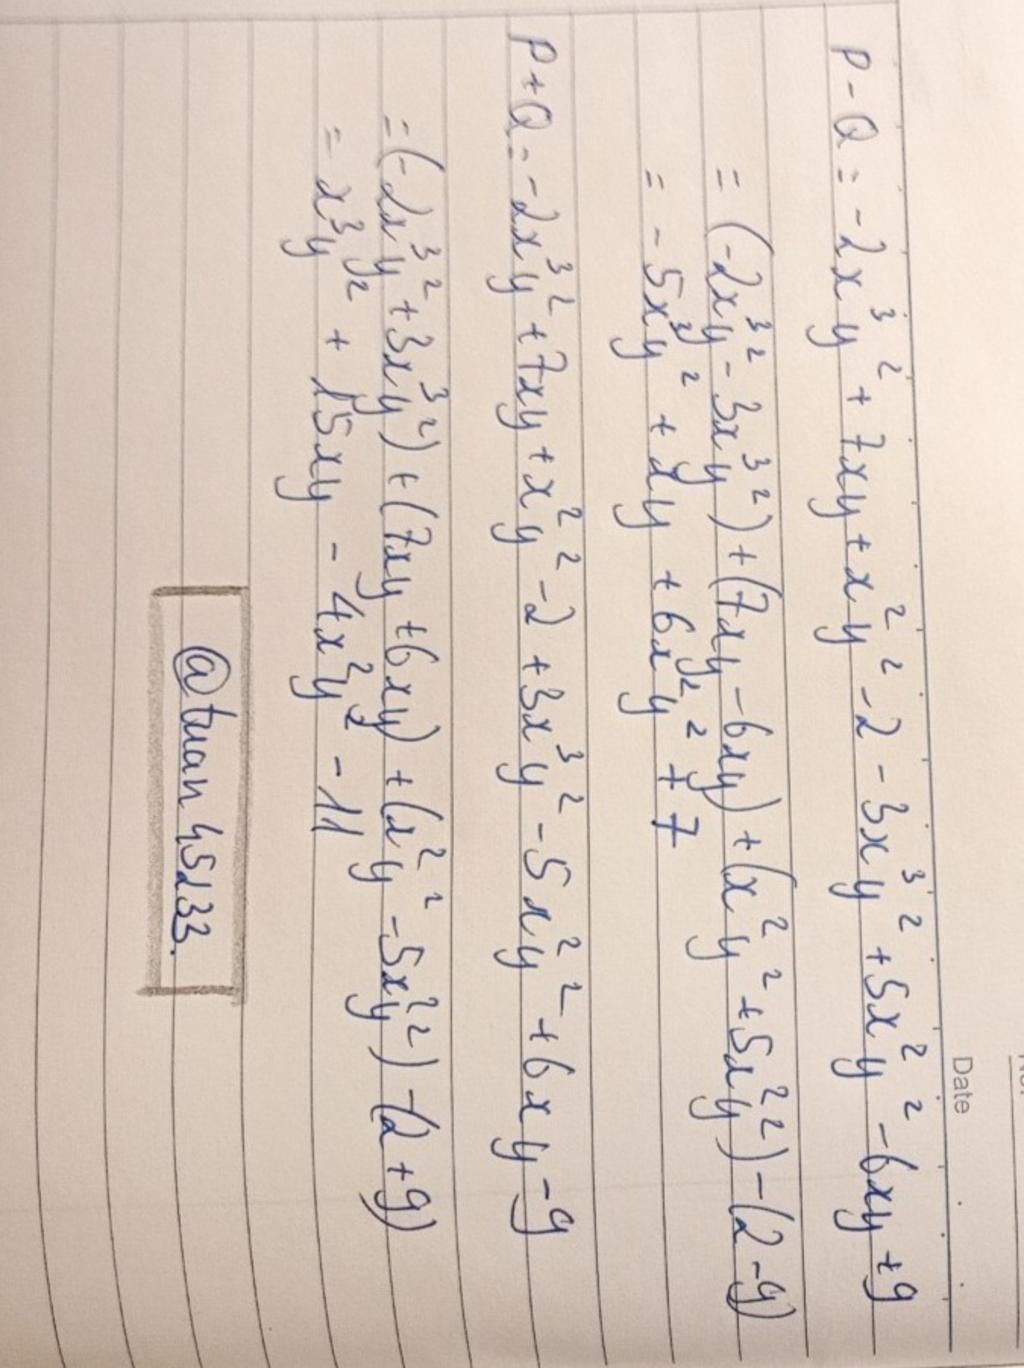 Date
P - Q = -2x³y² + 7xy + x²y² - 2 - 3x³y² + 5x²y² - 6xy + 9
= (-2x³y² - 3x³y²) + (7xy - 6xy) + (x²y² + 5x²y²) - (2 - 9)
= - 5x³y² + xy + 6x²y² + 7
P + Q = -2x³y² + 7xy + x²y² - 2 + 3x³y² - 5x²y² + 6xy - 9
= (-2x³y² + 3x³y²) + (7xy + 6xy) + (x²y² - 5x²y²) - (2 + 9)
= x³y² + 15xy - 4x²y² - 11
@tuan45233.